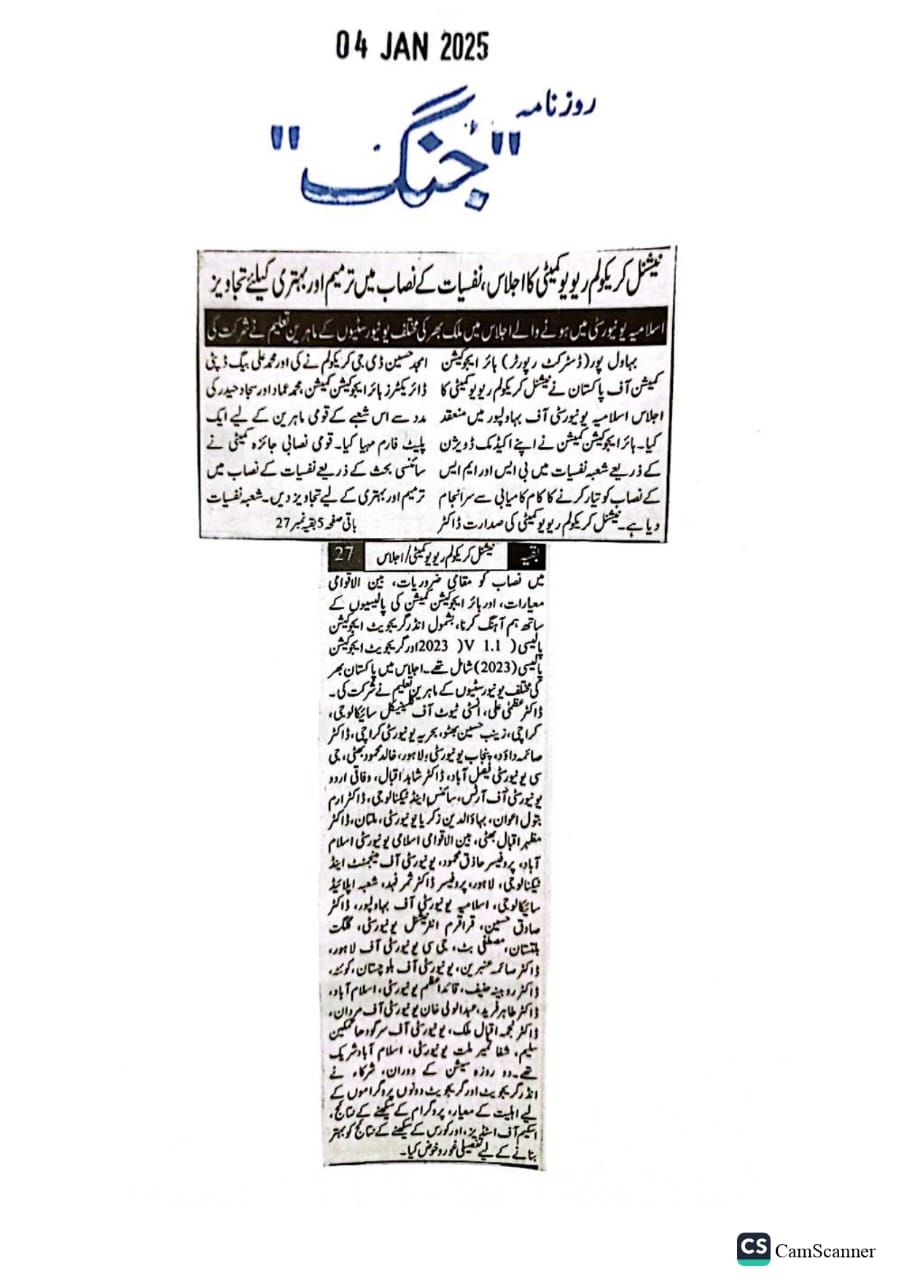 04 JAN 2025
روزنامہ
"جنگ"
نیشنل کریکولم ریویو کمیٹی کا اجلاس، نفسیات کے نصاب میں ترمیم اور بہتری کیلئے تجاویز
اسلامیہ یونیورسٹی میں ہونے والے اجلاس میں ملک بھر کی مختلف یونیورسٹیوں کے ماہرین تعلیم نے شرکت کی
بہاول پور (ڈسٹرکٹ رپورٹر) ہائر ایجوکیشن
کمیشن آف پاکستان نے نیشنل کریکولم ریویو کمیٹی کا
اجلاس اسلامیہ یونیورسٹی آف بہاولپور میں منعقد
کیا۔ ہائر ایجوکیشن کمیشن نے اپنے اکیڈمک ڈویژن
کے ذریعے شعبہ نفسیات میں بی ایس اور ایم ایس
کے نصاب کو تیار کرنے کا کام کامیابی سے سرانجام
دیا ہے۔ نیشنل کریکولم ریویو کمیٹی کی صدارت ڈاکٹر
امجد حسین ڈی جی کریکولم نے کی اور محمد علی بیگ ڈپٹی
ڈائریکٹرز ہائر ایجوکیشن کمیشن، محمد عماد اور سجاد حیدر کی
مدد سے اس شعبے کے قومی ماہرین کے لیے ایک
پلیٹ فارم مہیا کیا۔ قومی نصابی جائزہ کمیٹی نے
سائنسی بحث کے ذریعے نفسیات کے نصاب میں
ترمیم اور بہتری کے لیے تجاویز دیں۔ شعبہ نفسیات
باقی صفحہ 5 بقیہ نمبر 27
بقیہ نیشنل کریکولم ریویو کمیٹی/اجلاس 27
میں نصاب کو مقامی ضروریات، بین الاقوامی
معیارات، اور ہائر ایجوکیشن کمیشن کی پالیسیوں کے
ساتھ ہم آہنگ کرنا، بشمول انڈر گریجویٹ ایجوکیشن
پالیسی (V 1.1 )2023 اور گریجویٹ ایجوکیشن
پالیسی (2023) شامل تھے۔ اجلاس میں پاکستان بھر
کی مختلف یونیورسٹیوں کے ماہرین تعلیم نے شرکت کی۔
ڈاکٹر عظمیٰ علی، انسٹی ٹیوٹ آف کلینیکل سائیکالوجی،
کراچی، زینب حسین بھٹو، بحریہ یونیورسٹی کراچی، ڈاکٹر
صائمہ داؤد، پنجاب یونیورسٹی، لاہور، خالد محمود بھٹی، جی
سی یونیورسٹی فیصل آباد، ڈاکٹر شاہد اقبال، وفاقی اردو
یونیورسٹی آف آرٹس، سائنس اینڈ ٹیکنالوجی، ڈاکٹر ارم
بتول اعوان، بہاؤالدین زکریا یونیورسٹی، ملتان، ڈاکٹر
مظہر اقبال بھٹی، بین الاقوامی اسلامی یونیورسٹی اسلام
آباد، پروفیسر حاذق محمود، یونیورسٹی آف مینجمنٹ اینڈ
ٹیکنالوجی، لاہور، پروفیسر ڈاکٹر ثمر فہد، شعبہ اپلائیڈ
سائیکالوجی، اسلامیہ یونیورسٹی آف بہاولپور، ڈاکٹر
صادق حسین، قراقرم انٹرنیشنل یونیورسٹی، گلگت
بلتستان، مصطفیٰ بٹ، جی سی یونیورسٹی آف لاہور،
ڈاکٹر صائمہ عنبرین، یونیورسٹی آف بلوچستان، کوئٹہ،
ڈاکٹر روبینہ حنیف، قائداعظم یونیورسٹی، اسلام آباد،
ڈاکٹر طاہر فرید، عبدالولی خان یونیورسٹی آف مردان،
ڈاکٹر نجمہ اقبال ملک، یونیورسٹی آف سرگودھا تمکین
سلیم، شفا تعمیر ملت یونیورسٹی، اسلام آباد شریک
تھے۔ دو روزہ سیشن کے دوران، شرکاء نے
انڈر گریجویٹ اور گریجویٹ دونوں پروگراموں کے
لیے اہلیت کے معیار، پروگرام کے سیکھنے کے نتائج،
اسکیم آف اسٹڈیز، اور کورس کے سیکھنے کے نتائج کو بہتر
بنانے کے لیے تفصیلی غور و خوض کیا۔
CS CamScanner